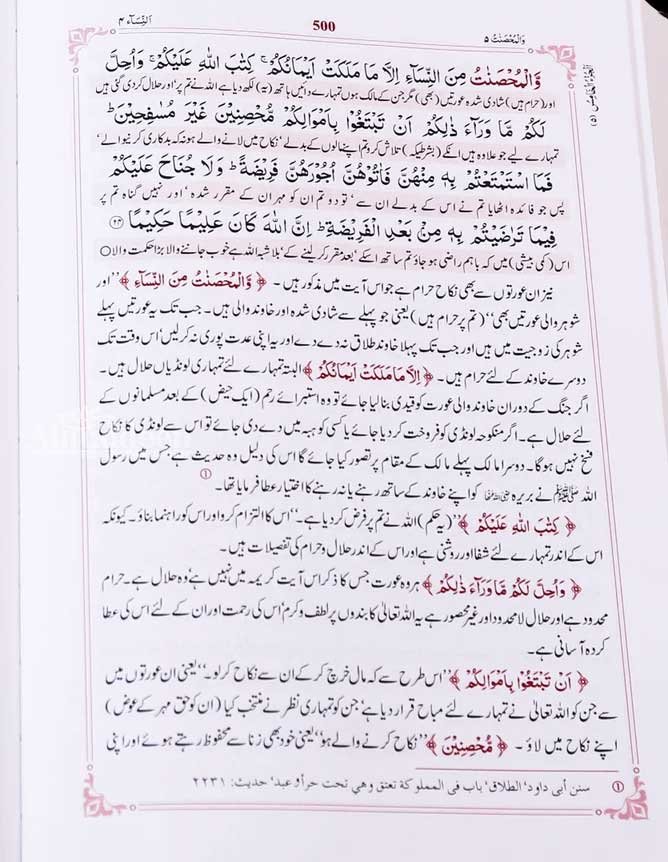 النِّسَآء ٤
500
وَالْمُحْصَنٰتُ ٥
اَلْجُزْءُ الْخَامِسُ (٥)
وَّالْمُحْصَنٰتُ مِنَ النِّسَآءِ اِلَّا مَا مَلَكَتْ اَيْمَانُكُمْ ۚ كِتٰبَ اللّٰهِ عَلَيْكُمْ ۚ وَاُحِلَّ
اور (حرام ہیں) شادی شدہ عورتیں (بھی) مگر جن کے مالک ہوں تمہارے دائیں ہاتھ (یہ) لکھ دیا ہے اللہ نے تم پر' اور حلال کر دی گئی ہیں
لَكُمْ مَّا وَرَآءَ ذٰلِكُمْ اَنْ تَبْتَغُوْا بِاَمْوَالِكُمْ مُّحْصِنِيْنَ غَيْرَ مُسٰفِحِيْنَ ؕ
تمہارے لیے جو علاوہ ہیں انکے (بشرطیکہ) تلاش کرو تم اپنے مالوں کے بدلے' نکاح میں لانے والے ہو نہ کہ بدکاری کرنیوالے'
فَمَا اسْتَمْتَعْتُمْ بِهٖ مِنْهُنَّ فَاٰتُوْهُنَّ اُجُوْرَهُنَّ فَرِيْضَةً ؕ وَلَا جُنَاحَ عَلَيْكُمْ
پس جو فائدہ اٹھایا تم نے اس کے بدلے ان سے' تو دو تم ان کو مہر ان کے مقرر شدہ' اور نہیں گناہ تم پر
فِيْمَا تَرٰضَيْتُمْ بِهٖ مِنْۢ بَعْدِ الْفَرِيْضَةِ ؕ اِنَّ اللّٰهَ كَانَ عَلِيْمًا حَكِيْمًا ﴿٢٤﴾
اس (کمی بیشی) میں کہ باہم راضی ہو جاؤ تم ساتھ اسکے' بعد مقرر کر لینے کے' بلاشبہ اللہ ہے خوب جاننے والا بڑا حکمت والا ○
نیز ان عورتوں سے بھی نکاح حرام ہے جو اس آیت میں مذکور ہیں۔ ﴿ وَّالْمُحْصَنٰتُ مِنَ النِّسَآءِ ﴾ ''اور
شوہر والی عورتیں بھی'' (تم پر حرام ہیں) یعنی جو پہلے سے شادی شدہ اور خاوند والی ہیں۔ جب تک یہ عورتیں پہلے
شوہر کی زوجیت میں ہیں اور جب تک پہلا خاوند طلاق نہ دے دے اور یہ اپنی عدت پوری نہ کر لیں' اس وقت تک
دوسرے خاوند کے لئے حرام ہیں۔ ﴿ اِلَّا مَا مَلَكَتْ اَيْمَانُكُمْ ﴾ البتہ تمہارے لئے تمہاری لونڈیاں حلال ہیں۔
اگر جنگ کے دوران خاوند والی عورت کو قیدی بنا لیا جائے تو وہ استبرائے رحم (ایک حیض) کے بعد مسلمانوں کے
لئے حلال ہے۔ اگر منکوحہ لونڈی کو فروخت کر دیا جائے یا کسی کو ہبہ میں دے دی جائے تو اس سے لونڈی کا نکاح
فسخ نہیں ہوگا۔ دوسرا مالک پہلے مالک کے مقام پر تصور کیا جائے گا اس کی دلیل وہ حدیث ہے جس میں رسول
اللہ ﷺ نے بریرہ رضی اللہ عنہا کو اپنے خاوند کے ساتھ رہنے یا نہ رہنے کا اختیار عطا فرمایا تھا۔ ①
﴿ كِتٰبَ اللّٰهِ عَلَيْكُمْ ﴾ ''(یہ حکم) اللہ نے تم پر فرض کر دیا ہے۔'' اس کا التزام کرو اور اس کو راہنما بناؤ۔ کیونکہ
اس کے اندر تمہارے لئے شفا اور روشنی ہے اور اس کے اندر حلال و حرام کی تفصیلات ہیں۔
﴿ وَاُحِلَّ لَكُمْ مَّا وَرَآءَ ذٰلِكُمْ ﴾ ہر وہ عورت جس کا ذکر اس آیت کریمہ میں نہیں ہے' وہ حلال ہے۔ حرام
محدود ہے اور حلال لا محدود اور غیر محصور ہے یہ اللہ تعالیٰ کا بندوں پر لطف و کرم' اس کی رحمت اور ان کے لئے اس کی عطا
کردہ آسانی ہے۔
﴿ اَنْ تَبْتَغُوْا بِاَمْوَالِكُمْ ﴾ ''اس طرح سے کہ مال خرچ کر کے ان سے نکاح کر لو۔'' یعنی ان عورتوں میں
سے جن کو اللہ تعالیٰ نے تمہارے لئے مباح قرار دیا ہے' جن کو تمہاری نظر نے منتخب کیا (ان کو حق مہر کے عوض)
اپنے نکاح میں لاؤ۔ ﴿ مُّحْصِنِيْنَ ﴾ ''نکاح کرنے والے ہو'' یعنی خود بھی زنا سے محفوظ رہتے ہوئے اور اپنی
① سنن أبی داود' الطلاق' باب فی المملوكة تعتق وهي تحت حرأو عبد' حدیث: ٢٢٣١